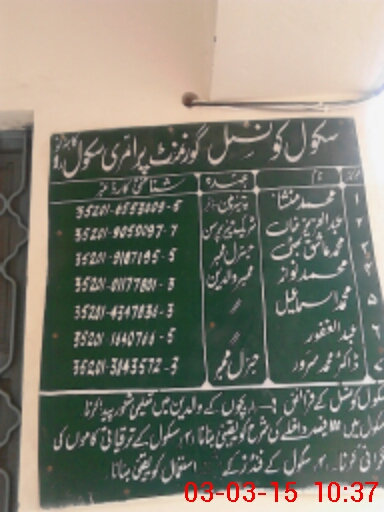 سکول کونسل گورنمنٹ پرائمری سکول
نام عہدہ شناختی کارڈ نمبر
۱ محمد منشا 35201-6553809-5
۲ عبدالعزیز خان شریک چیئر پرسن 35201-9059097-7
محمد عاشق بھٹی جنرل ممبر 35201-9187195-5
۴ محمد نواز ممبر والدین 35201-0177801-3
۵ محمد اسماعیل 〃 35201-4347831-3
۶ عبدالغفور 〃 35201-1640766-5
ڈاکٹر محمد سرور جنرل ممبر 35201-3143572-3
سکول کونسل کے فرائض ۱۔ بچوں کے والدین میں تعلیمی شعور پیدا کرنا
سکول میں فیصد داخلے کی شرح کو یقینی بنانا ۳۔ سکول کے ترقیاتی کاموں کی
نگرانی کرنا۔ سکول کے فنڈز کے استعمال کو یقینی بنانا
03-03-15 10:37